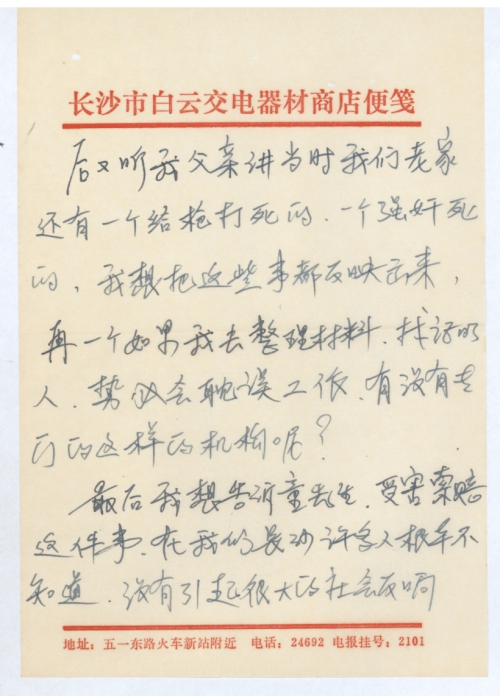 长沙市白云交电器材商店便笺
后又听我父亲讲当时我们老家
还有一个给枪打死的、一个强奸死
的，我想把这些事都反映出来，
再一个如果我去整理材料、找证明
人，势必会耽误工作、有没有专
门的这样的机构呢？
最后我想告诉童先生，受害索赔
这件事、在我们长沙许多人根本不
知道、没有引起很大的社会反响
地址：五一东路火车新站附近 电话：24692 电报挂号：2101